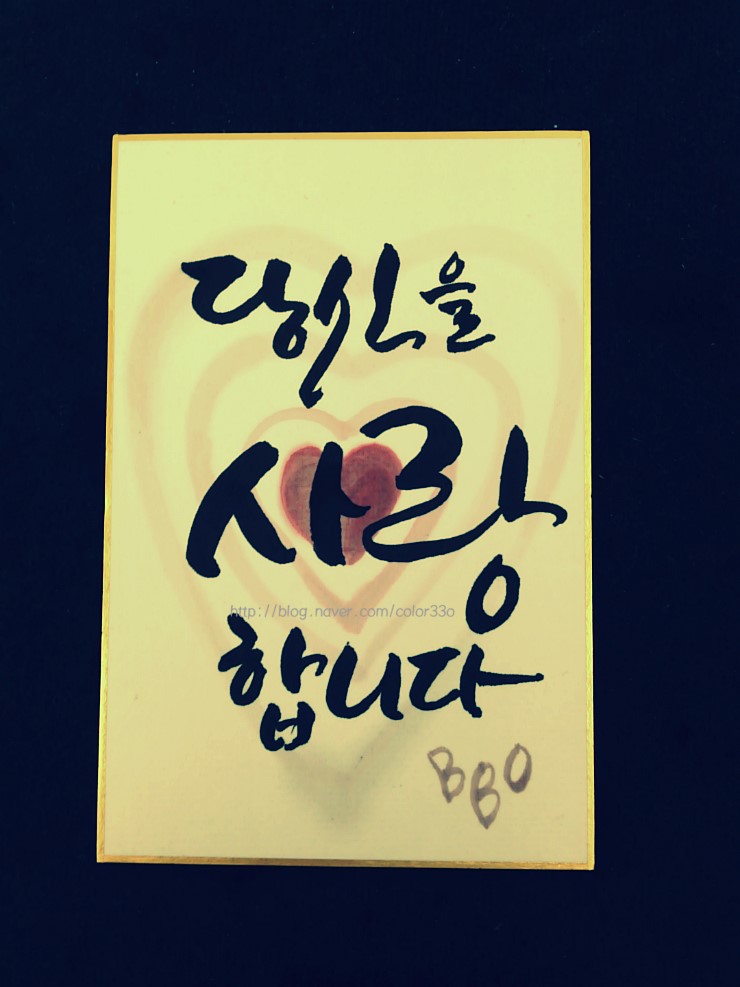 당신을
사랑
http://blog.naver.com/color33o
합니다
BBO